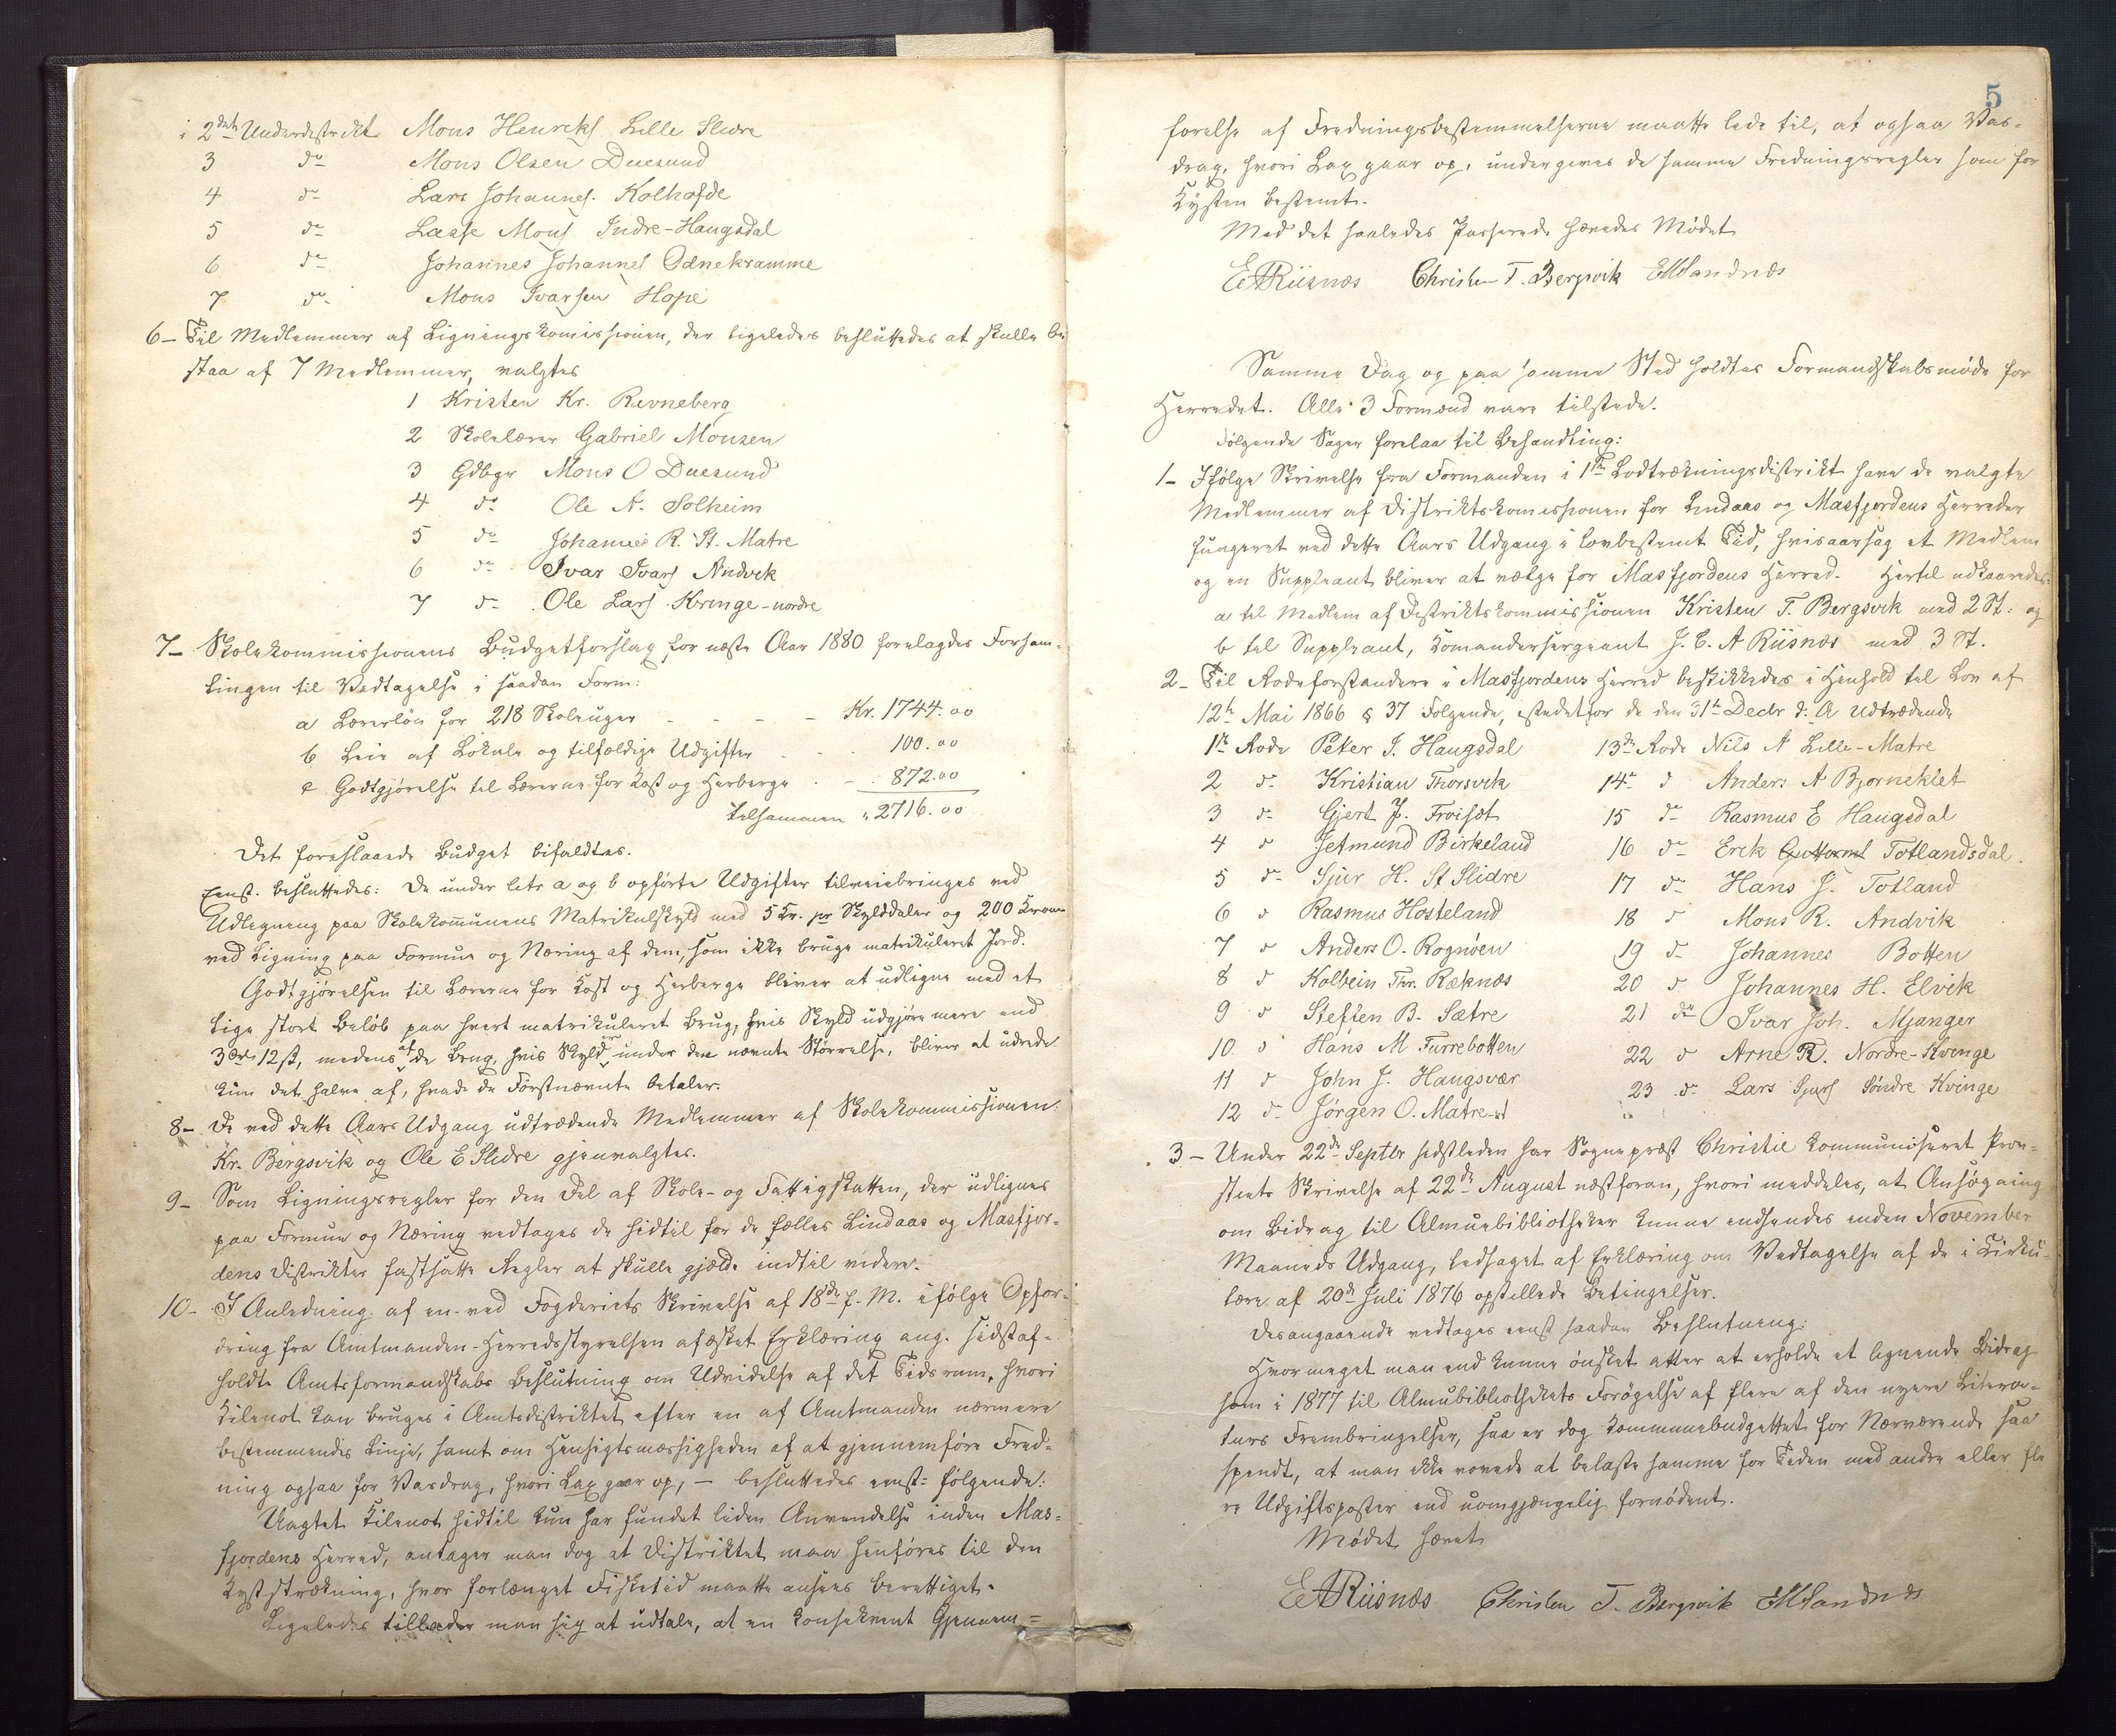 i 2det Underdistrikt Mons Henriks. Lille Slidre
3 do Mons Olsen Duesund
4 do Lars Johannes. Kolhofde
5 do Lasse Mons. Indre-Haugsdal
6 do Johannes Johannes. Odnekramme
7 do Mons Ivarsen Hope
6 – Til Medlemmer af Ligningskomissionen, der ligeledes besluttedes at skulle be
staa af 7 Medlemmer, valgtes
1 Kristen Kr. Ravneberg
2 Skolelærer Gabriel Monsen
3 Gdbgr Mons O Duesund
4 do Ole A. Solheim
5 do Johannes R. St. Matre
6 do Ivar Ivars. Andvik
7 do Ole Lars. Kvinge-nordre
7 – Skolekommissionens Budgetforslag for næste Aar 1880 forelagdes Forsam-
lingen til Vedtagelse i saadan Form:
a Lærerløn for 218 Skoleuger - - - - Kr. 1744.00
b Leie af Lokale og tilfældige Udgifter - - 100.00
c Godtgjørelse til Lærerne for Kost og Herberge - - 872.00
tilsammen " 2716.00
Det foreslaaede Budget bifaldtes.
Enst. besluttedes: De under litr a og b opførte Udgifter tilveiebringes ved
Udligning paa Skolekommunens Matrikulskyld med 5 Kr. pr Skylddaler og 200 Kroner
ved Ligning paa Formue og Næring af dem, som ikke bruge matrikuleret Jord.
Godtgjørelsen til Lærerne for Kost og Herberge bliver at udligne med et
lige stort Beløb paa hvert matrikuleret Brug, hvis Skyld udgjøre mere end
3 Ort 12 ß, medens af de Brug, hvis Skyld er under den nævnte Størrelse, bliver at udrede
kun det halve af, hvad de Førstnævnte betaler.
8 – De ved dette Aars Udgang udtrædende Medlemmer af Skolekommissionen:
Kr. Bergsvik og Ole E Slidre gjenvalgtes.
9 – Som Ligningsregler for den Del af Skole- og Fattigskatten, der udlignes
paa Formue og Næring vedtages de hidtil for de fælles Lindaas og Masfjor-
dens Distrikter fastsatte Regler at skulle gjælde indtil videre.
10 – I Anledning af en ved Fogderiets Skrivelse af 18de f. M. ifølge Opfor-
dring fra Amtmanden - Herredsstyrelsen afæsket Erklæring ang. sidstaf-
holdte Amtsformandskabs Beslutning om Udvidelse af det Tidsrum, hvori
Kilenot kan bruges i Amtsdistriktet efter en af Amtmanden nærmere
bestemmendes Linje, samt om Hensigtsmæssigheden af at gjennemføre Fred-
ning ogsaa for Vasdrag, hvori Lax gaar op, – besluttedes enst: følgende:
Uagtet Kilenot hidtil kun har fundet liden Anvendelse inden Mas-
fjordens Herred, antager man dog at Distriktet maa henføres til den
Kyststrækning, hvor forlænget Fisketid maatte ansees berettiget.
Ligeledes tillader man sig at udtale, at en konsekvent Gjennem=
5
førelse af Fredningsbestemmelserne maatte lede til, at ogsaa Vas-
drag, hvori Lax gaar op, undergives de samme Fredningsregler som for
Kysten bestemt.
Med det saaledes Passerede hævedes Mødet
E A Riisnæs Christen T. Bergsvik E M Sandnæs
Samme Dag og paa samme Sted holdtes Formandskabsmøde for
Herredet. Alle 3 Formænd vare tilstede.
Følgende Sager forelaa til Behandling:
1 – Ifølge Skrivelse fra Formanden i 1ste Lodtrækningsdistrikt have de valgte
Medlemmer af Distriktskomissionen for Lindaas og Masfjordens Herreder
fungeret ved dette Aars Udgang i lovbestemt Tid, hvisaarsag et Medlem
og en Suppleant bliver at vælge for Masfjordens Herred. Hertil udkaaredes:
a til Medlem af Distriktskommissionen Kristen T. Bergsvik med 2 St: og
b til Suppleant, Komandersergeant J. E. A Riisnæs med 3 St.
2 – Til Rodeforstandere i Masfjordens Herred beskikkedes i Henhold til Lov af
12te Mai 1866 § 37 Følgende, istedetfor de den 31te Decbr d: A Udtrædende
1ste Rode Peter J. Haugsdal
2 do Kristian Thorsvik
3 do Gjert J. Frøiset
4 do Jetmund Birkeland
5 do Sjur H. St Slidre
6 do Rasmus Hosteland
7 do Anders O. Rognøen
8 do Kolbein Thr. Ræknes
9 do Steffen B. Sætre
10 do Hans M Furrebotten
11 do John J. Haugsvær
12 do Jørgen O. Matre-st
13de Rode Nils N Lille-Matre
14 do Anders A Bjorneklet
15 do Rasmus E Haugsdal
16 do Erik Guttorms. Totlandsdal
17 do Hans J. Totland
18 do Mons R. Andvik
19 do Johannes Botten
20 do Johannes H. Elvik
21 do Ivar Joh. Mjanger
22 do Arne R. Nordre-Kvinge
23 do Lars Sjurs. Søndre Kvinge
3 – Under 22de Septbr sidstleden har Sognepræst Christie kommuniseret Prov-
stiets Skrivelse af 22de August næstforan, hvori meddeles, at Ansøgning
om Bidrag til Almuebibliotheker kunne indsendes inden November
Maaneds Udgang, ledsaget af Erklæring om Vedtagelse af de i Cirku-
lære af 20de Juli 1876 opstillede Betingelser.
Desangaaende vedtages enst saadan Beslutning:
Hvormeget man end kunne ønsket atter at erholde et lignende Bidrag
som i 1877 til Almubibliothekets Forøgelse af flere af den nyere Litera-
turs Frembringelser, saa er dog Kommunebudgettet for Nærværende saa
spendt, at man ikke vovede at belaste samme for Tiden med andre eller fle
re Udgiftsposter end uomgjængelig fornødent.
Mødet hævet
E A Riisnæs Christen T. Bergsvik E M Sandnæs